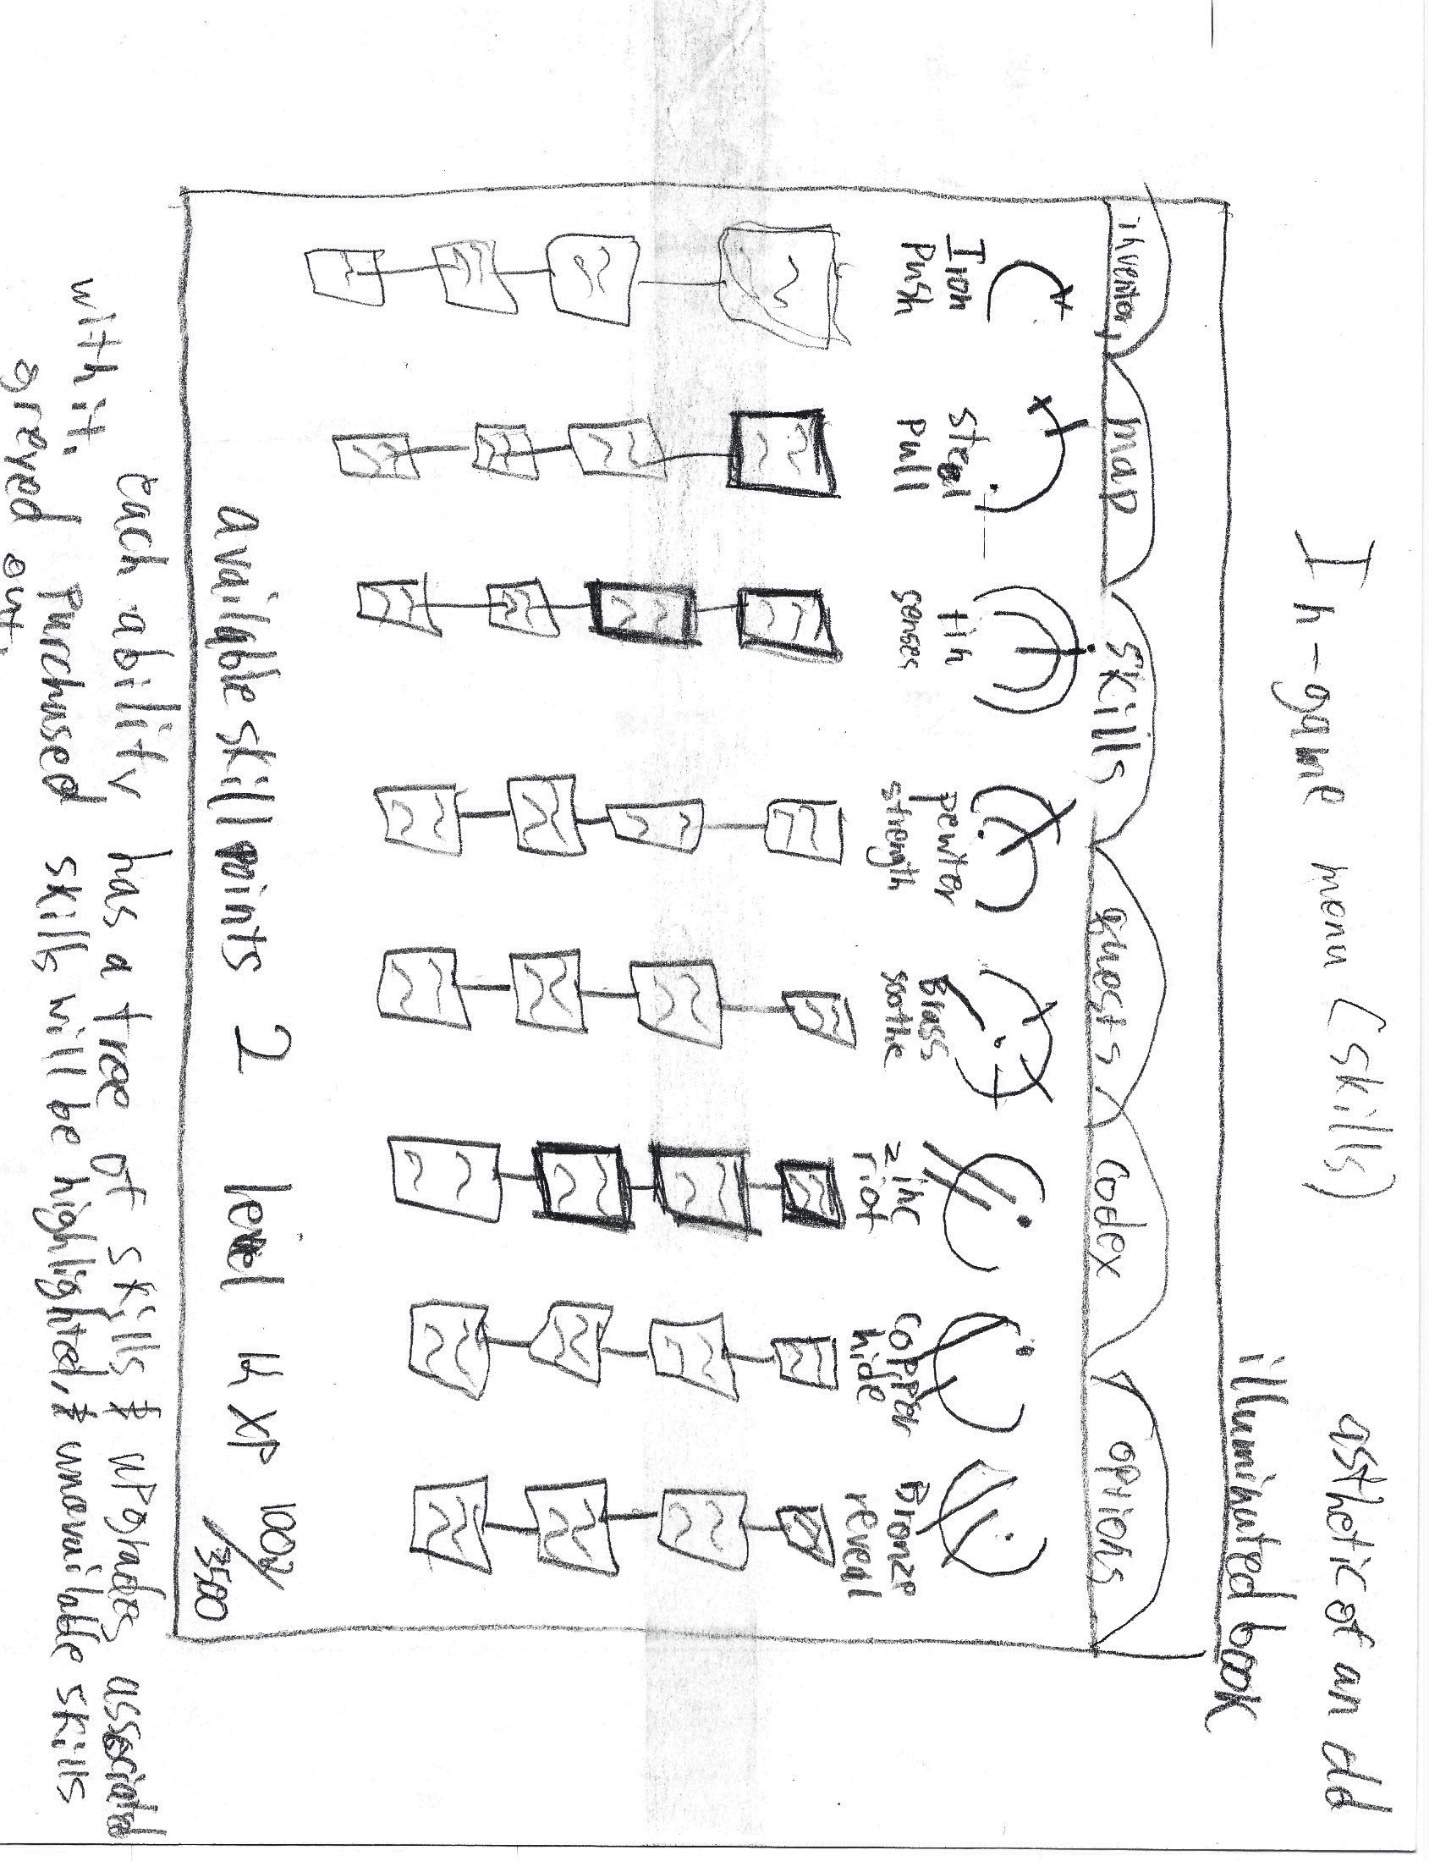 In-game menu (skills)
asthetic of an old
illuminated book
inventory map skills quests codex options
Iron
Push
steel
pull
tin
senses
pewter
strength
Brass
soothe
zinc
riot
copper
hide
Bronze
reveal
available skill points 2 level 4 XP 1002/3500
each ability has a tree of skills & upgrades associated
with it. purchased skills will be highlighted, & unavailable skills
greyed out.